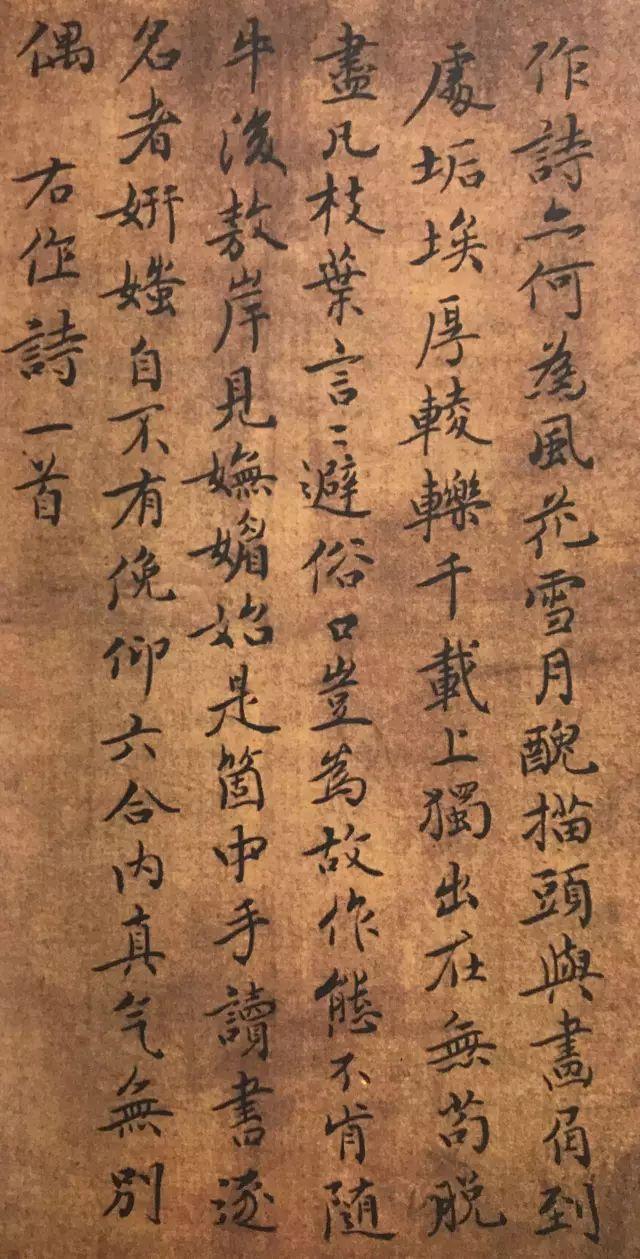 作詩亦何為風花雪月醜描頭與畫角到
處垢埃厚輘轢千載上獨出在無苟脫
盡凡枝葉言〻避俗口豈為故作態不肯隨
牛後敖岸見嫵媚始是箇中手讀書逐
名者妍媸自不有俛仰六合內真气無別
偶 右作詩一首